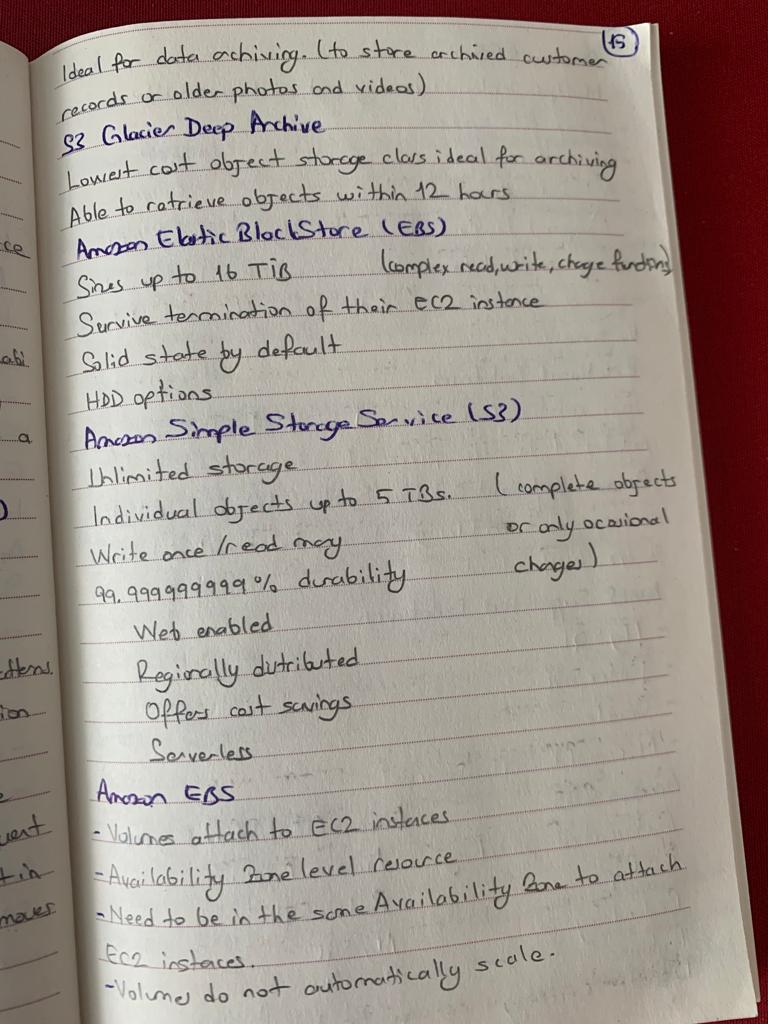 15
Ideal for data achiving. (to store archived customer
records or older photos and videos)
S3 Glacier Deep Archive
Lowest cost object storage class ideal for archiving
Able to ratrieve objects within 12 hours
Amazon Elastic Block Store (EBS)
Sizes up to 16 TiB (complex read, write, change functions)
Survive termination of their EC2 instance
Solid state by default
HDD options
Amazon Simple Storage Service (S3)
Unlimited storage
Individual objects up to 5 TBs. (complete objects
Write once /read many or only ocasional
99.999999999% durability changes)
Web enabled
Regionally distributed
Offers cost savings
Serverless
Amazon EBS
- Volumes attach to EC2 instaces
- Availability Zone level resource
- Need to be in the same Availability Zone to attach
EC2 instaces.
- Volumes do not automatically scale.
ce
abi
a
)
ion
uent
t in
moves